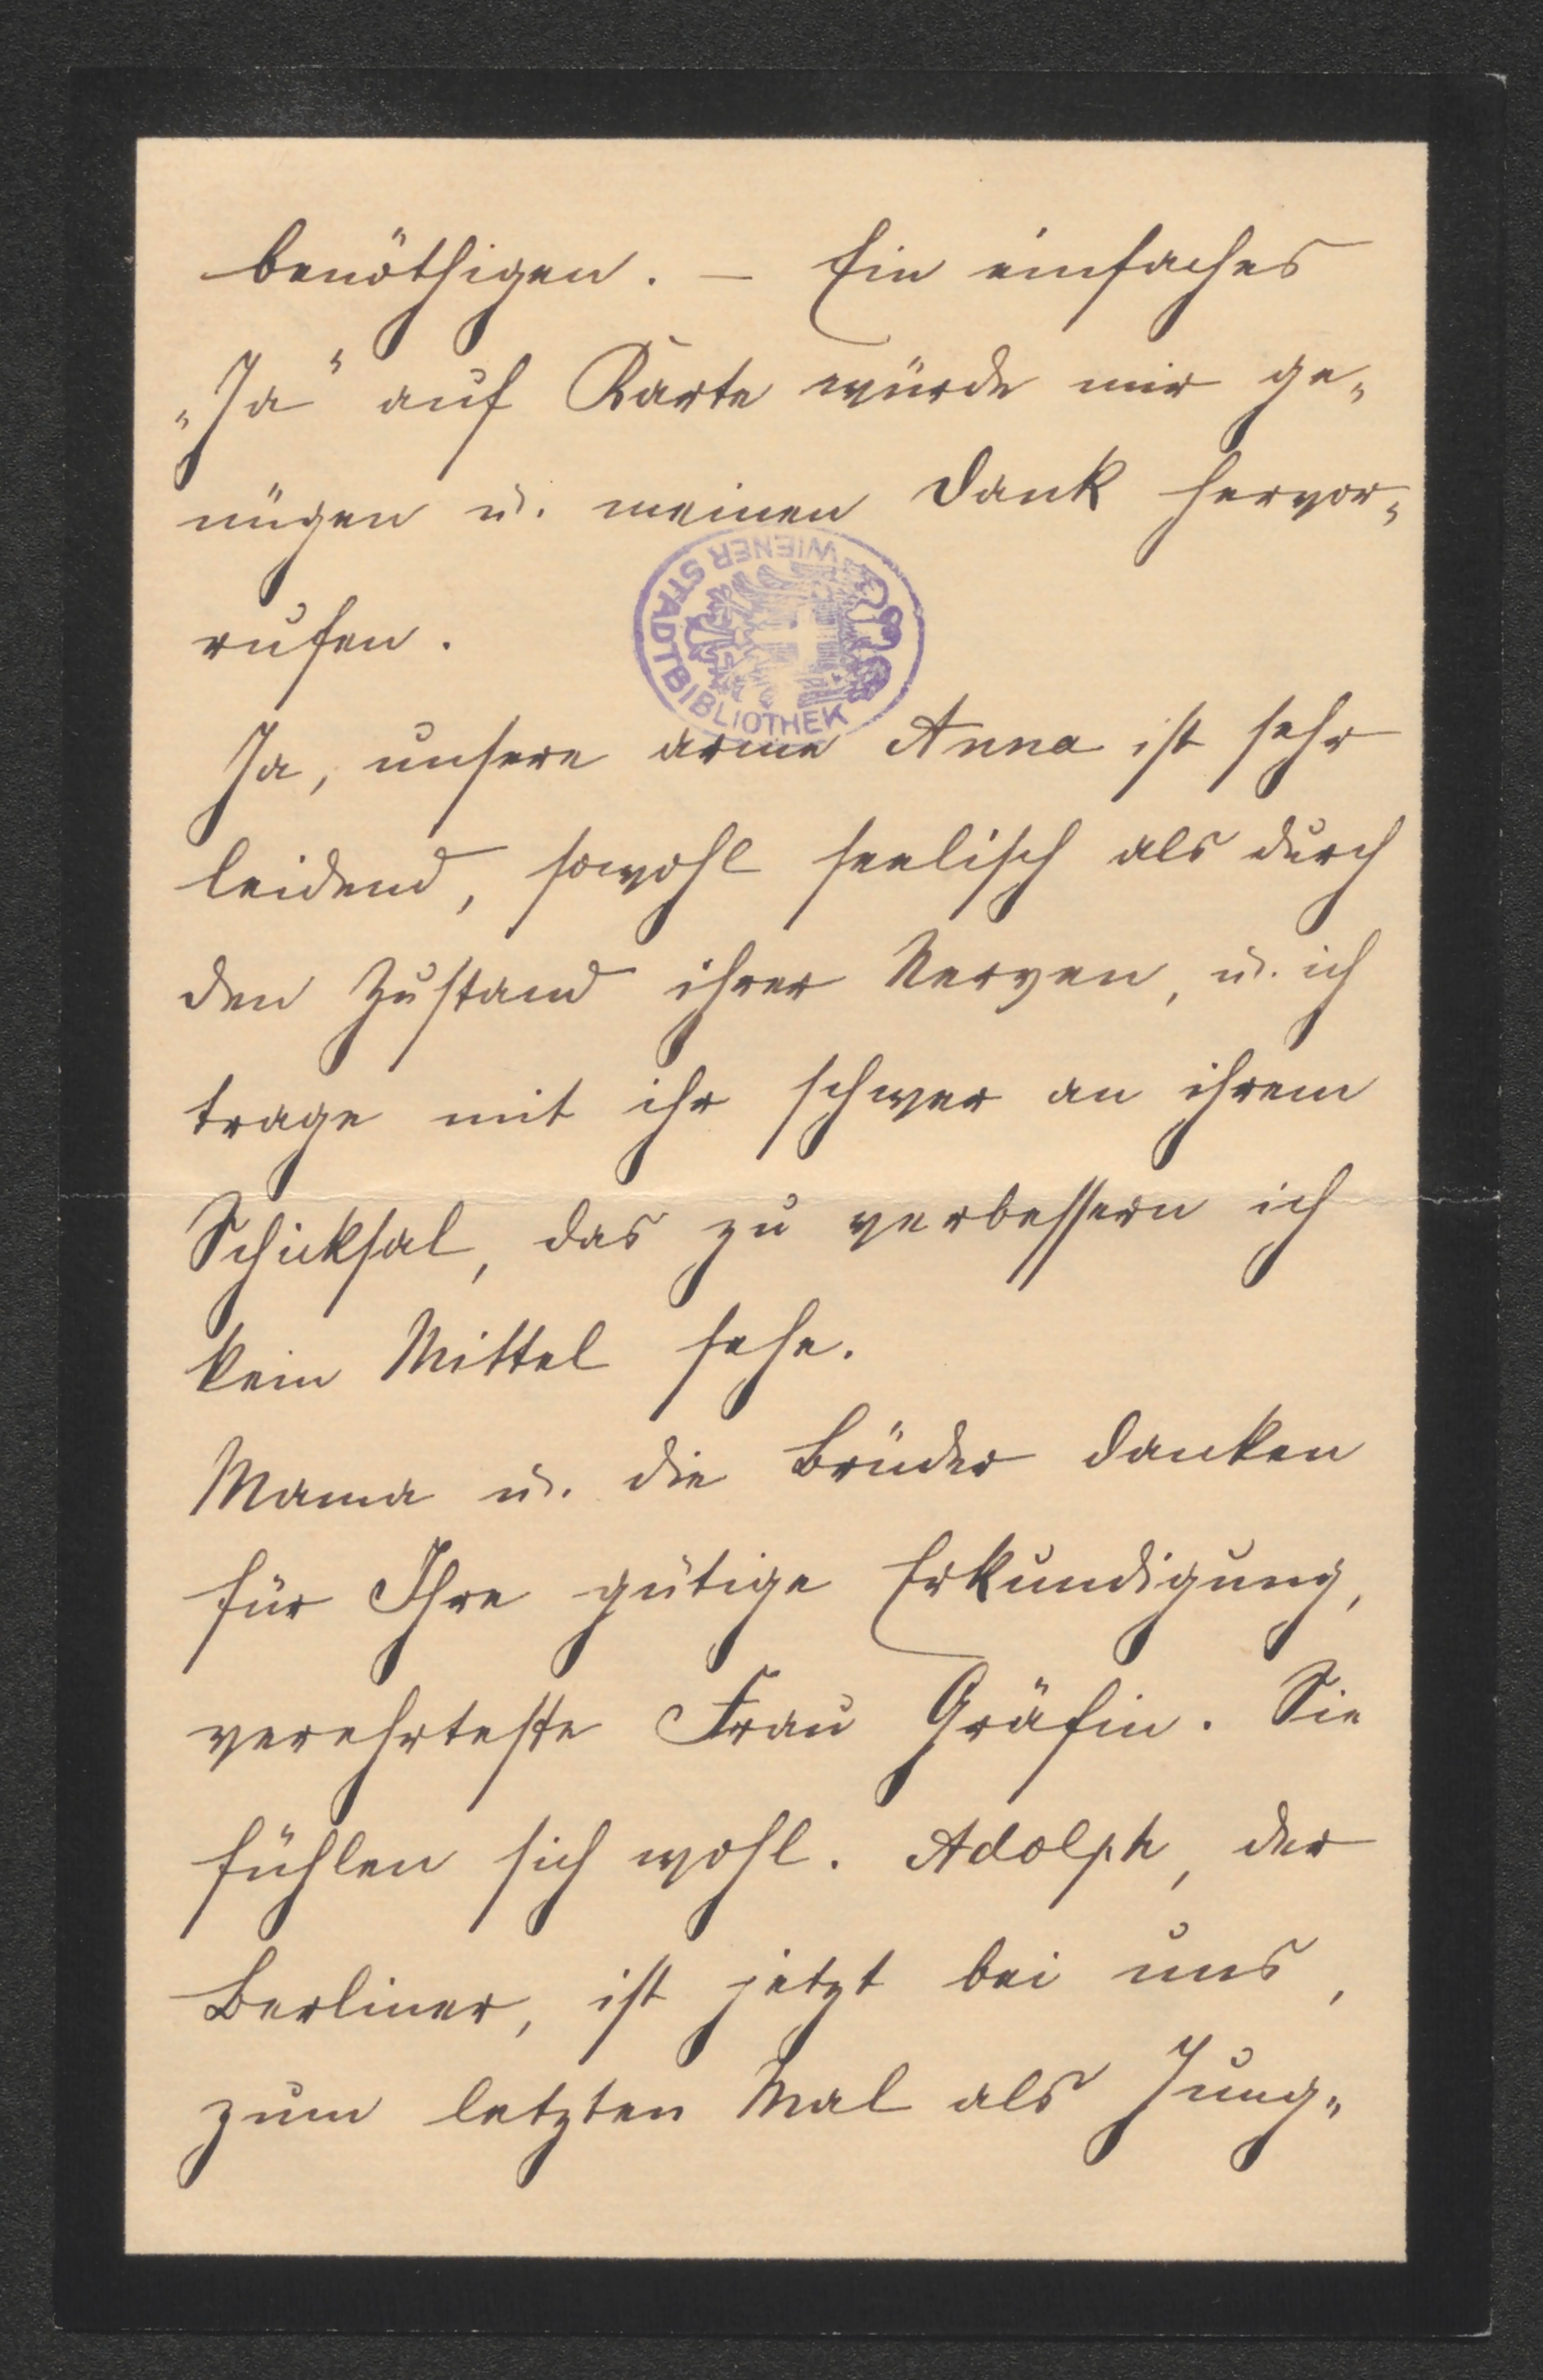 benöthigen. — Ein einfaches
„Ja“ auf Karte würde mir ge-
nügen u. meinen Dank hervor-
rufen.
WIENER STADTBIBLIOTHEK
Ja, unsere arme Anna ist sehr
leidend, sowohl seelisch als durch
den Zustand ihrer Nerven, u. ich
trage mit ihr schwer an ihrem
Schicksal, das zu verbessern ich
kein Mittel sehe.
Mama u. die Brüder danken
für Ihre gütige Erkundigung,
verehrteste Frau Gräfin. Sie
fühlen sich wohl. Adolph, der
Berliner, ist jetzt bei uns,
zum letzten Mal als Jung-